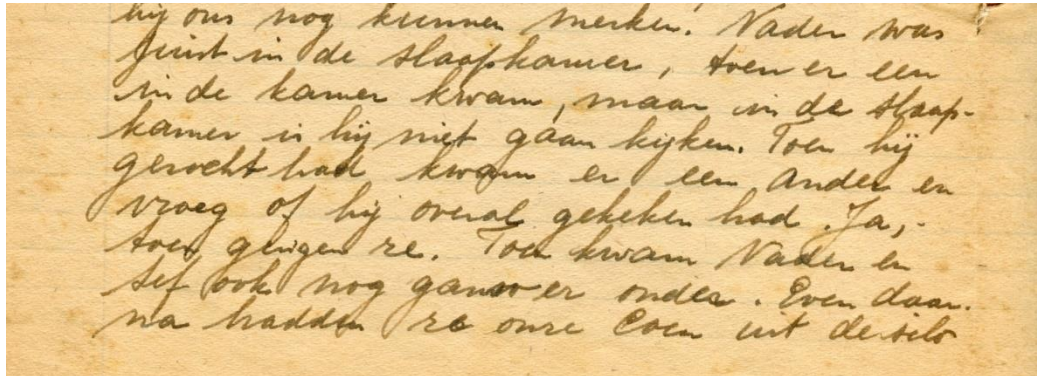 hij ons nog kunnen merken. Vader was
juist in de slaapkamer, toen er een
in de kamer kwam, maar in de slaap-
kamer is hij niet gaan kijken. Toen hij
gezocht had kwam er een ander en
vroeg of hij overal gekeken had. Ja,
toen gingen ze. Toen kwam Vader en
Sef ook nog er onder. Even daar-
na hadden ze onze Coen uit de silo